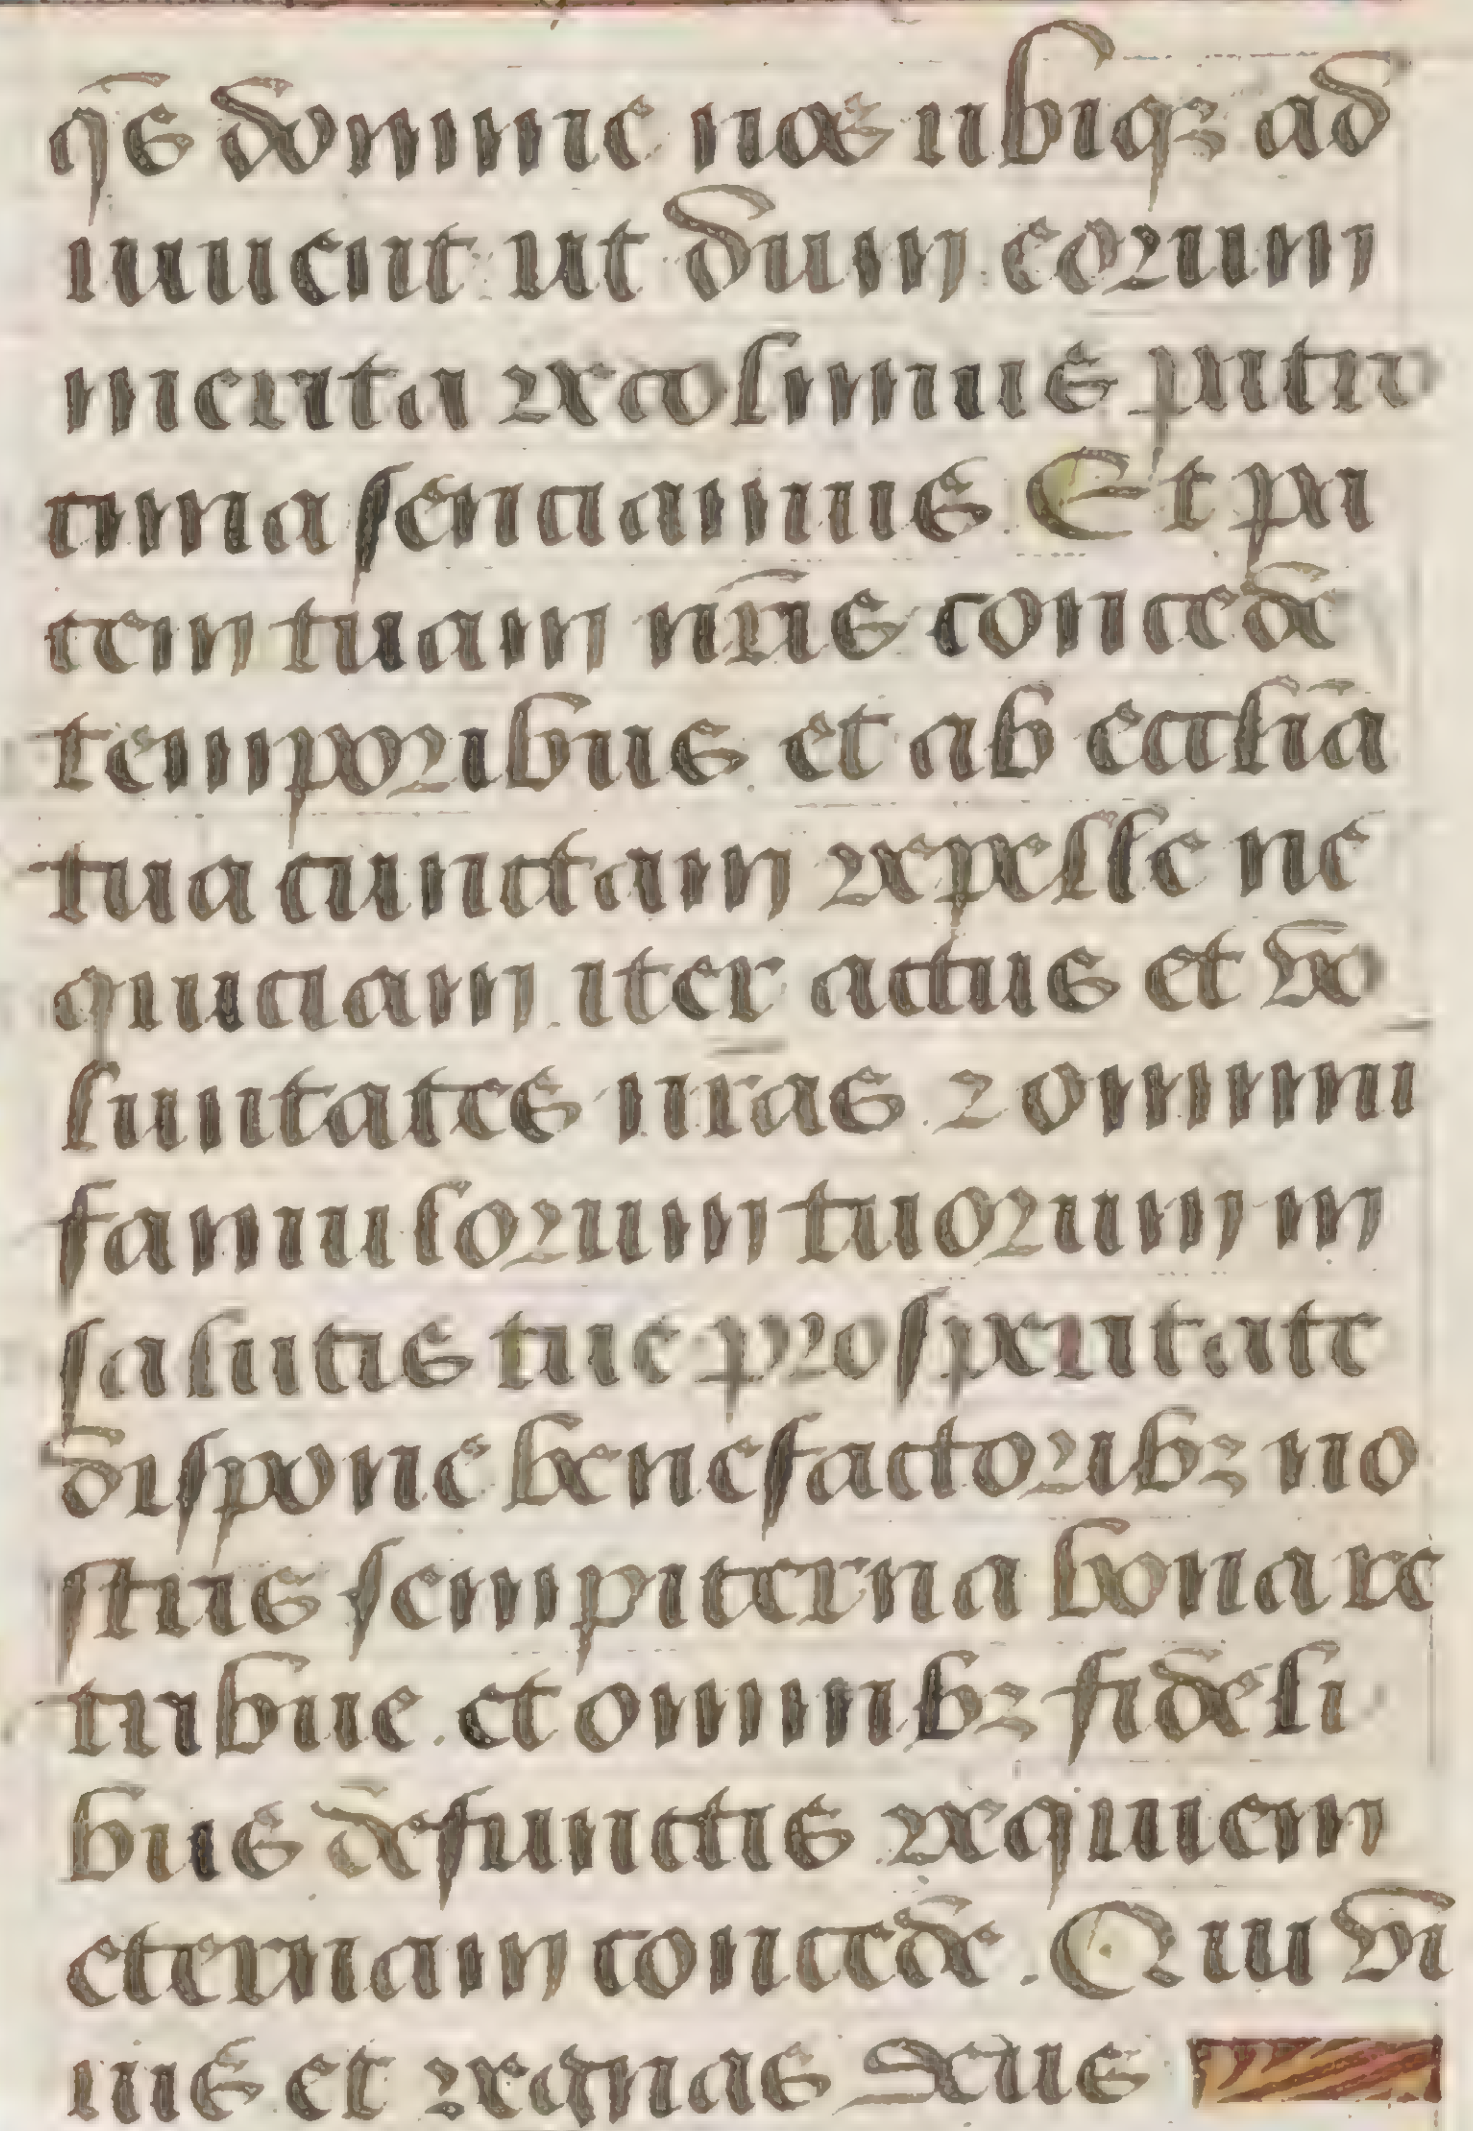 q̄s domine nos ubiqꝫ ad
iuuent ut dum eorum
merita recolimus patro
cinia senciamus. Et pa
cem tuam nr̄is concede
temporibus. et ab ecclīa
tua cunctam repelle ne
quiciam. iter actus et vo
luntates nr̄as. ⁊ omniū
famulorum tuorum in
salutis tue prosperitate
dispone benefactoribꝫ no
stris sempiterna bona re
tribue. et omnibꝫ fideli
bus defunctis requiem
eternam concede. Qui vi
uis et regnas Deus